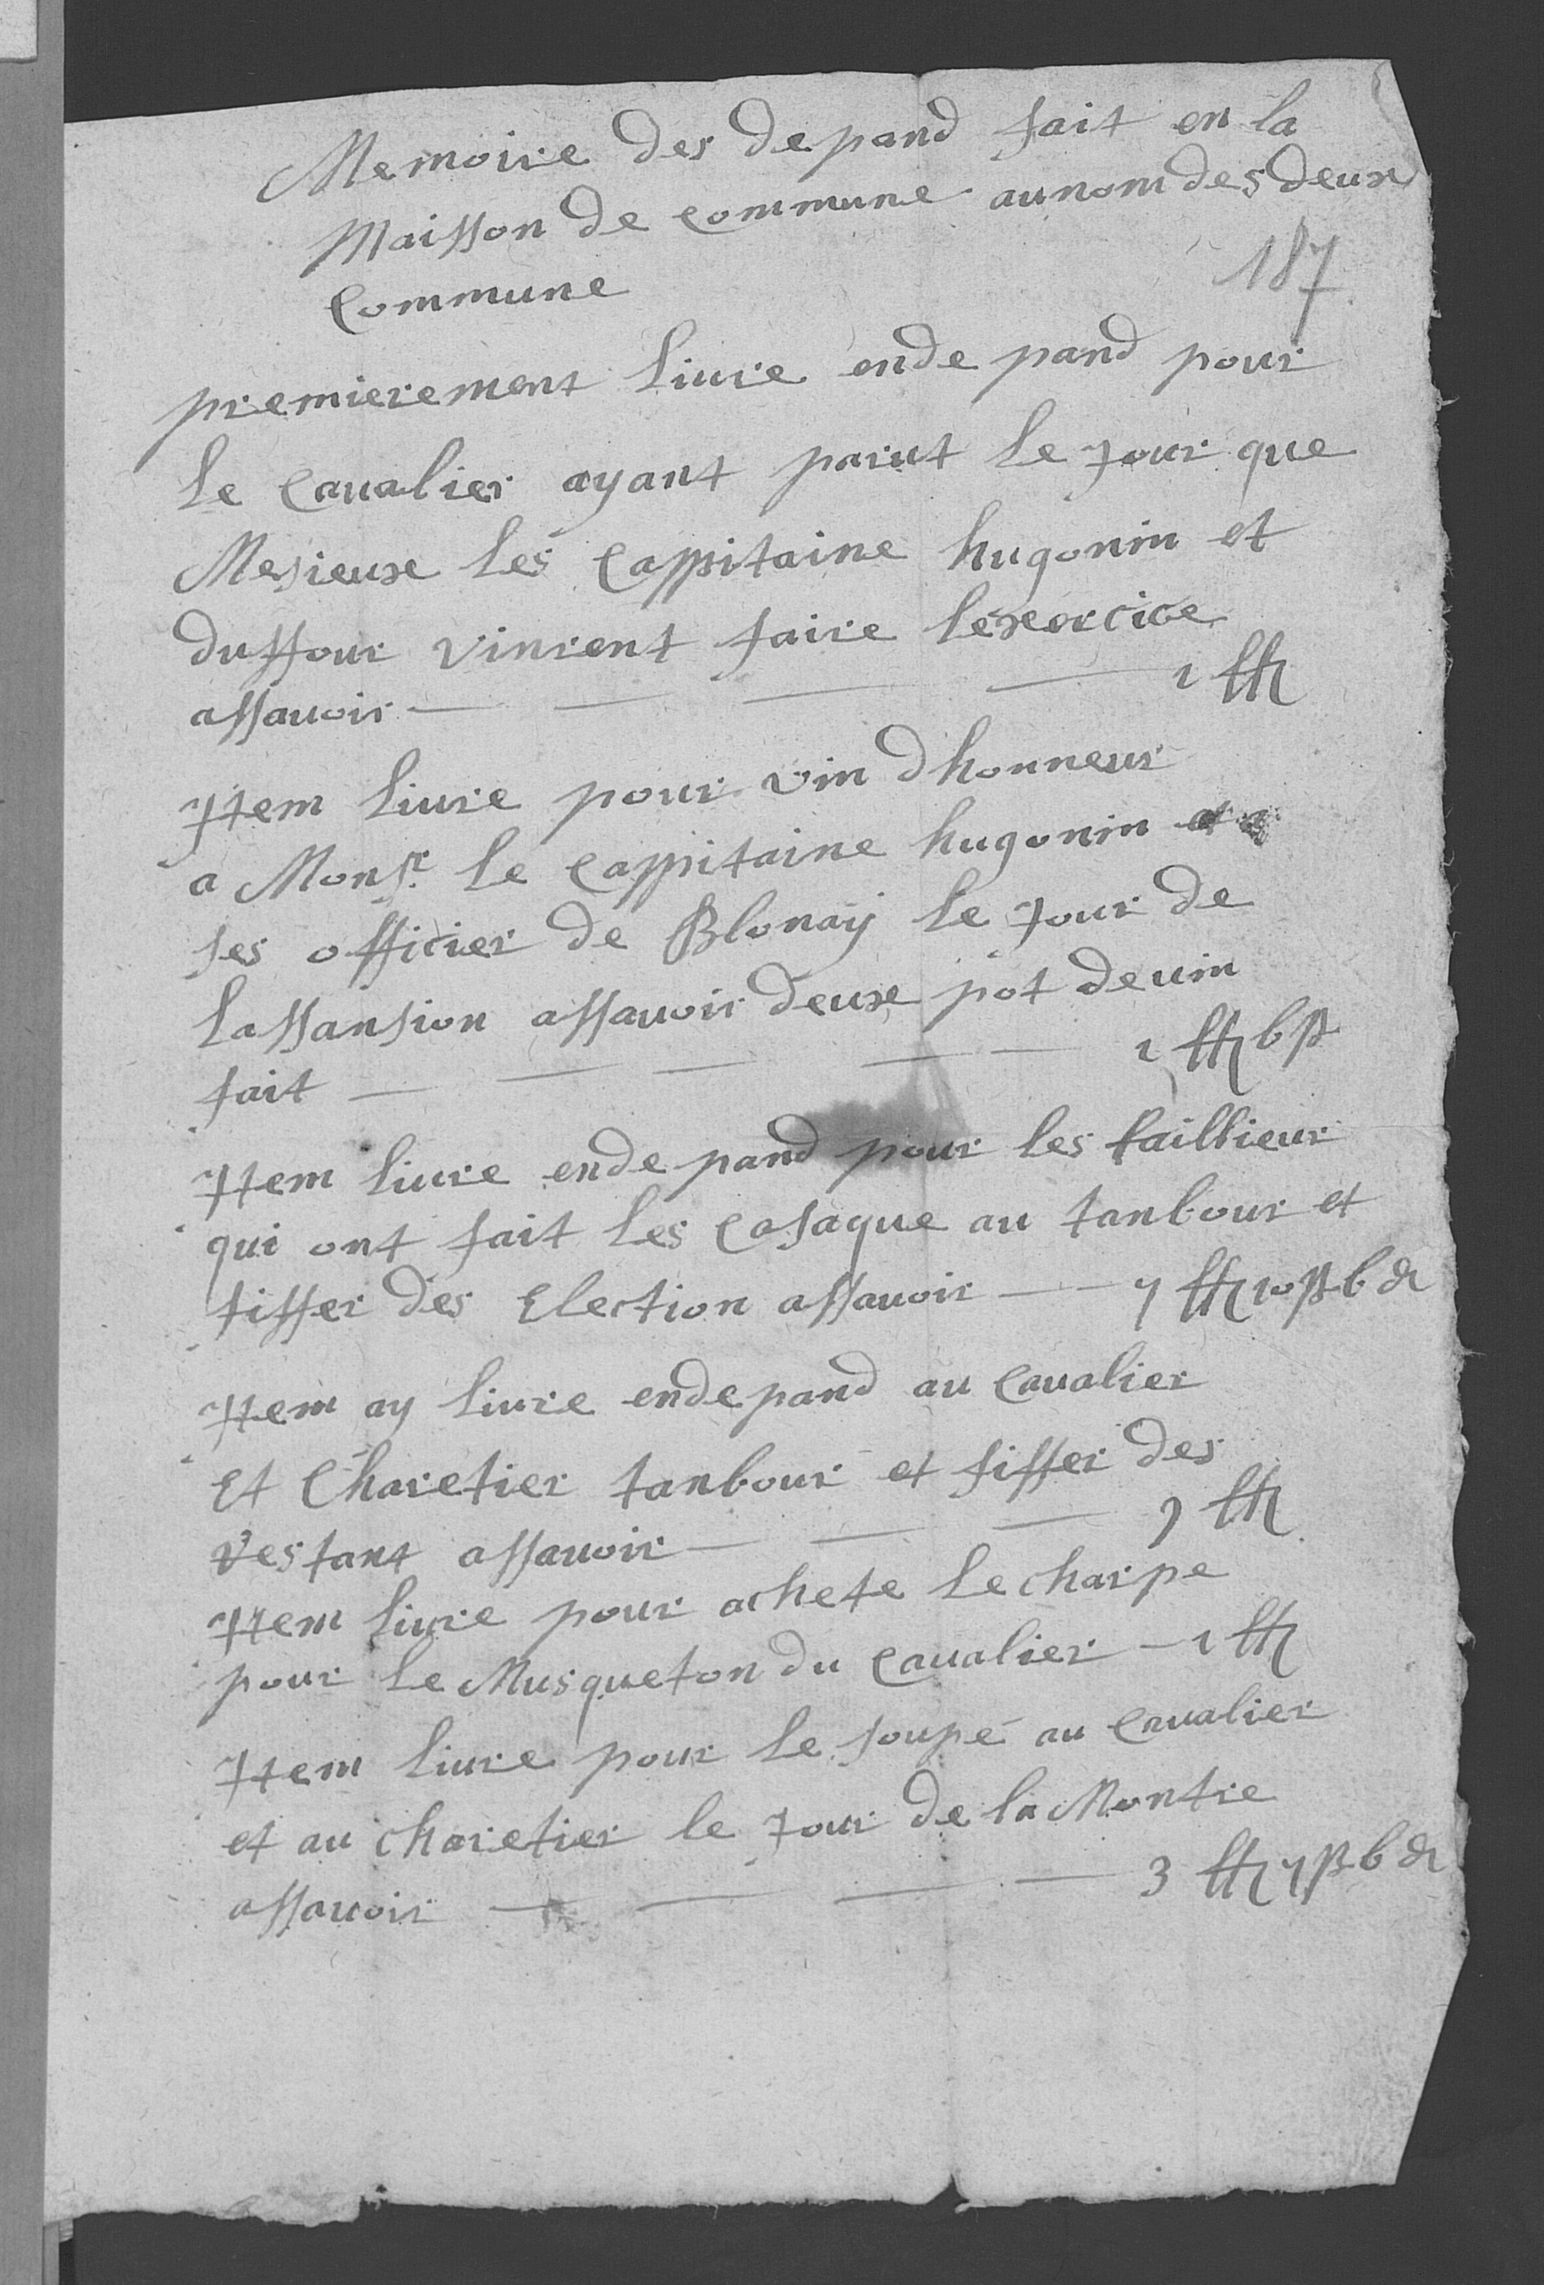 Memoire des depand fait en la
Maisson de commune au nom des deux
Commune
187
premierement liure en depand pour
le Caualier ayant parut le jour que
Mesieux les Cappitaine hugonin et
duffour vinrent faire lexercice
assauoir — — — 1 ℔
Jtem liure pour vin dhonneur
a Monsr. le cappitaine hugonin et a
ses officier de Blonay le jour de
lassansion assauoir deux pot de uin
fait — — — — — 1 ℔ 6 ß
Jtem liure en depand pour les taillieur
qui ont fait les Casaque au tanbour et
fiffer des Election assauoir — — 7 ℔ 10 ß 6 d
Jtem ay liure en depand au Caualier
Et Charetier tanbour et fiffer des
vestant assauoir — — — 9 ℔
Jtem liure pour achete lecharpe
pour le Musqueton du Caualier — 1 ℔
Jtem liure pour le soupé au Caualier
et au charetier le jour de la Montre
assauoir — — — — 3 ℔ 7 ß 6 d